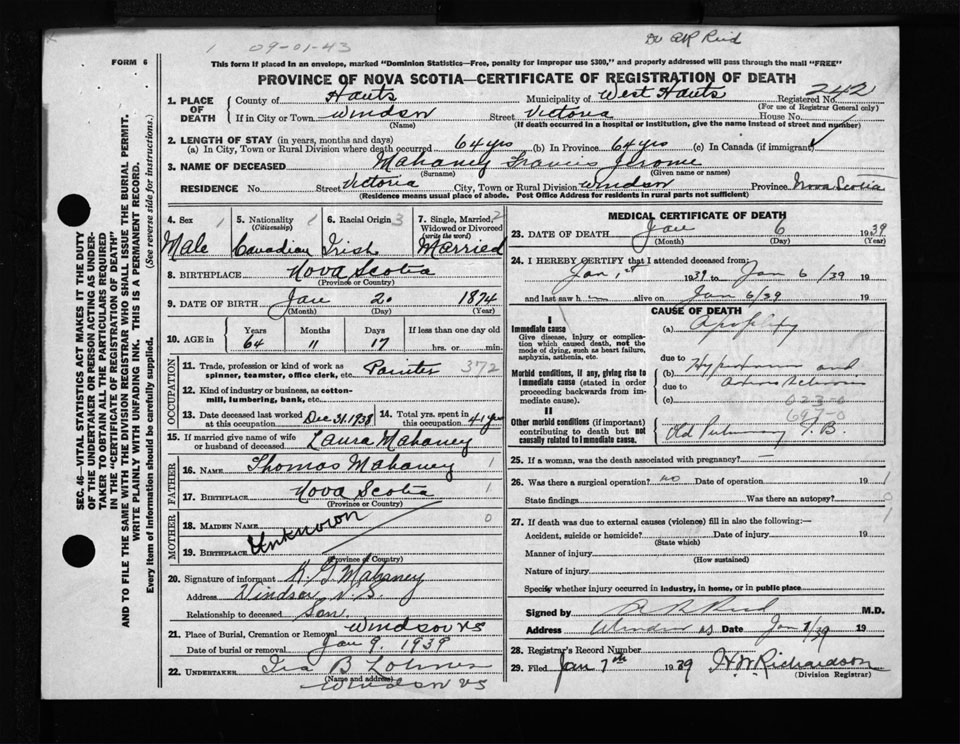 1 09-01-43
Dr AR Reid
FORM 6
This form if placed in an envelope, marked "Dominion Statistics—Free, penalty for improper use $300," and properly addressed will pass through the mail "FREE"
PROVINCE OF NOVA SCOTIA—CERTIFICATE OF REGISTRATION OF DEATH
1. PLACE OF DEATH County of Hants Municipality of West Hants Registered No. 242
(For use of Registrar General only)
If in City or Town Windsor Street Victoria House No.
(Name) (If death occurred in a hospital or institution, give the name instead of street and number)
2. LENGTH OF STAY (in years, months and days)
(a) In City, Town or Rural Division where death occurred 64 yrs (b) In Province 64 yrs (c) In Canada (if immigrant)
3. NAME OF DECEASED Mahaney Francis Jerome
(Surname) (Given name or names)
RESIDENCE No. Street Victoria City, Town or Rural Division Windsor Province Nova Scotia
(Residence means usual place of abode. Post Office Address for residents in rural parts not sufficient)
4. Sex 1 5. Nationality 1 6. Racial Origin 3 7. Single, Married, 2
(Citizenship) Widowed or Divorced
(write the word)
Male Canadian Irish Married
8. BIRTHPLACE Nova Scotia
(Province or Country)
9. DATE OF BIRTH Jan 20 1874
(Month) (Day) (Year)
10. AGE in Years Months Days If less than one day old
64 11 17 hrs. or min.
OCCUPATION
11. Trade, profession or kind of work as Painter 372
spinner, teamster, office clerk, etc.
12. Kind of industry or business, as cotton-
mill, lumbering, bank, etc.
13. Date deceased last worked Dec 31, 1938 14. Total yrs. spent in 41 years
at this occupation at this occupation
15. If married give name of wife Laura Mahaney
or husband of deceased
FATHER
16. NAME Thomas Mahaney 1
17. BIRTHPLACE Nova Scotia 1
(Province or Country)
MOTHER
18. MAIDEN NAME Unknown 0
19. BIRTHPLACE
(Province or Country)
20. Signature of informant Mahaney
Address Windsor N.S.
Relationship to deceased Son
21. Place of Burial, Cremation or Removal Windsor NS
Date of burial or removal Jan 9, 1939
22. UNDERTAKER Ira B Lohnes
(Name and address)
Windsor NS
MEDICAL CERTIFICATE OF DEATH
23. DATE OF DEATH Jan 6 1939
(Month) (Day) (Year)
24. I HEREBY CERTIFY that I attended deceased from:
Jan 1st 1939 to Jan 6/39 19
and last saw him alive on Jan 6/39 19
CAUSE OF DEATH
I
Immediate cause (a) Apoplexy
Give disease, injury or complica-
tion which caused death, not the
mode of dying, such as heart failure,
asphyxia, asthenia, etc.
due to
Morbid conditions, if any, giving rise to (b) and
immediate cause (stated in order due to
proceeding backwards from im-
mediate cause). (c) 023-0
II
Other morbid conditions (if important)
contributing to death but not
causally related to immediate cause.
Old Pulmonary T.B.
25. If a woman, was the death associated with pregnancy? —
26. Was there a surgical operation? no Date of operation 19
State findings Was there an autopsy?
27. If death was due to external causes (violence) fill in also the following:—
Accident, suicide or homicide? Date of injury 19
(State which)
Manner of injury
(How sustained)
Nature of injury
Specify whether injury occurred in industry, in home, or in public place
Signed by A R Reid M.D.
Address Windsor NS Date Jan 7/39 19
28. Registrar's Record Number
29. Filed Jan 7th 1939 H.W. Richardson
(Division Registrar)
SEC. 46—VITAL STATISTICS ACT MAKES IT THE DUTY
OF THE UNDERTAKER OR PERSON ACTING AS UNDER-
TAKER TO OBTAIN ALL THE PARTICULARS REQUIRED
IN THE "CERTIFICATE OF REGISTRATION OF DEATH"
AND TO FILE THE SAME WITH THE DIVISION REGISTRAR WHO SHALL ISSUE THE BURIAL PERMIT.
WRITE PLAINLY WITH UNFADING INK. THIS IS A PERMANENT RECORD.
Every item of information should be carefully supplied. (See reverse side for instructions.)